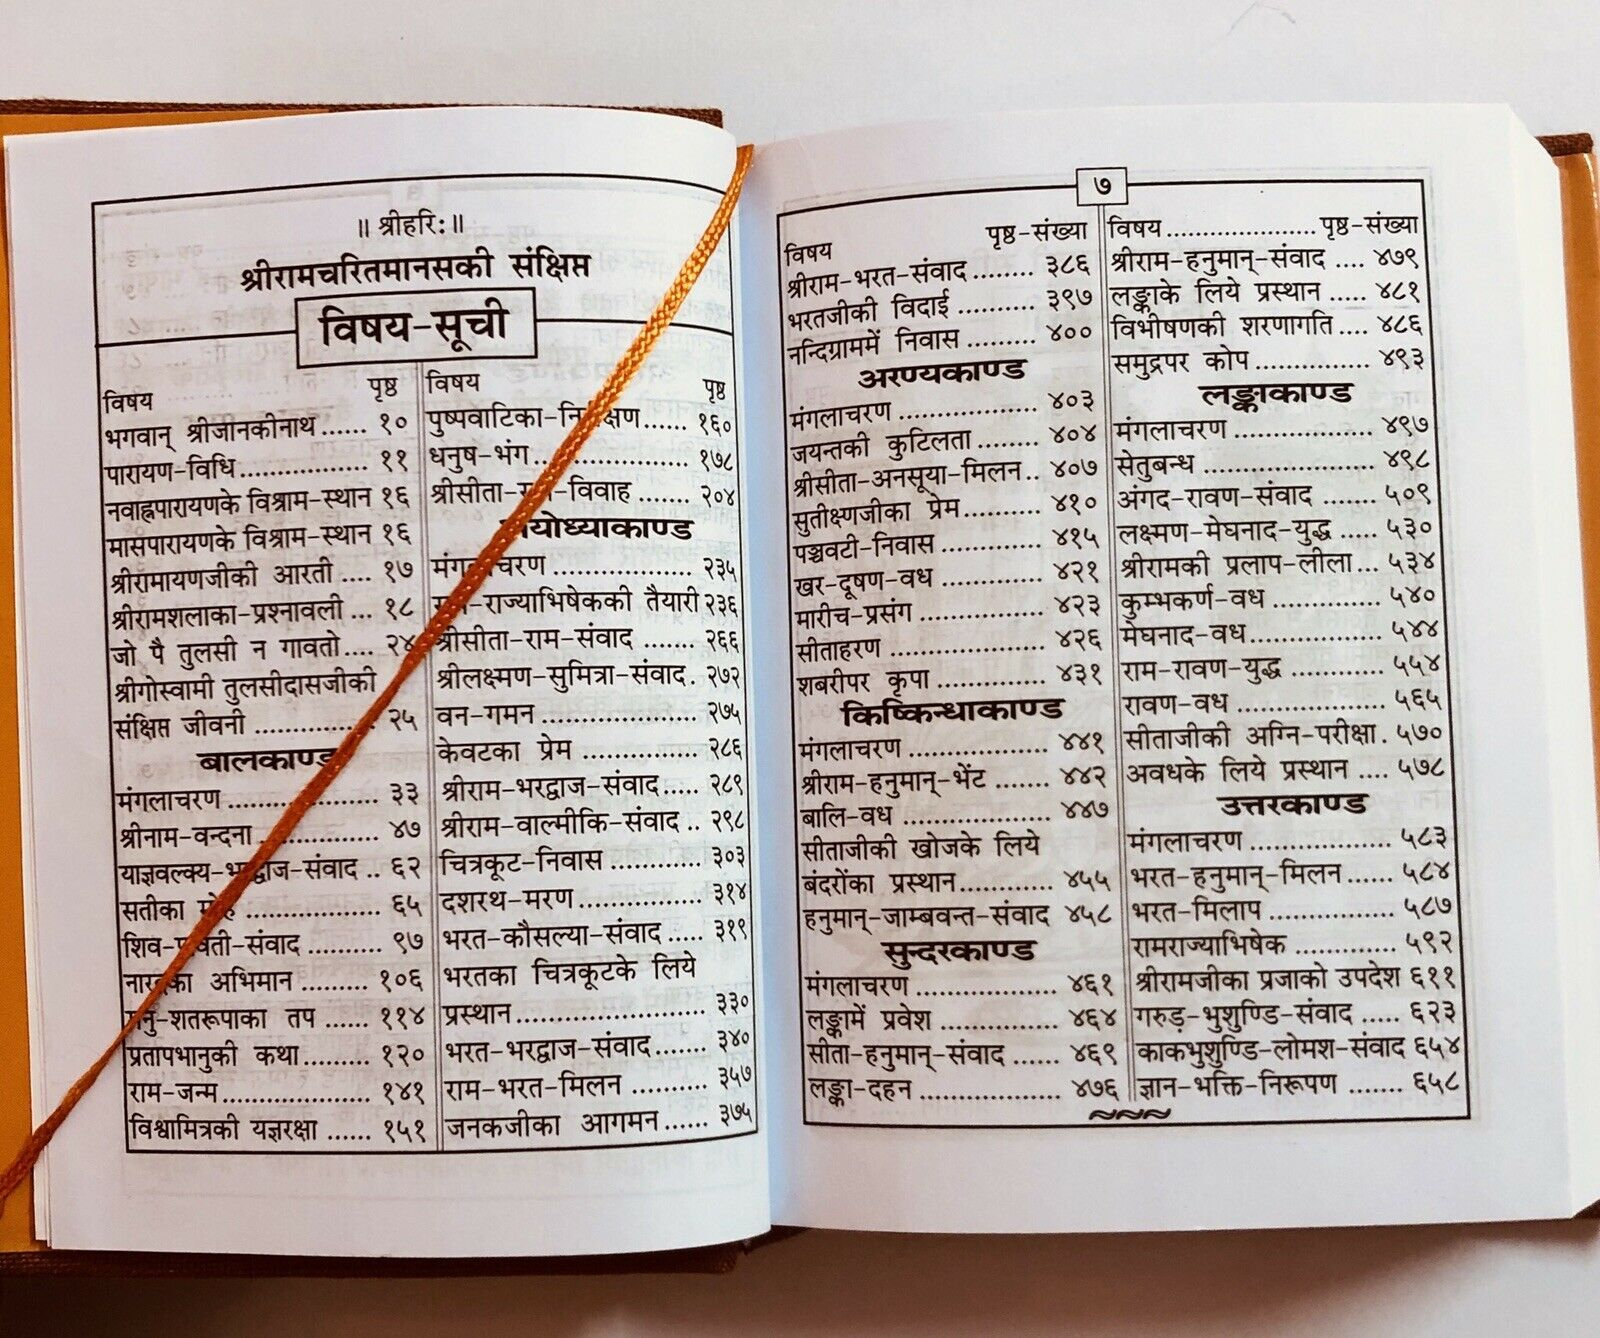 ॥ श्रीहरि:॥
श्रीरामचरितमानसकी संक्षिप्त
विषय-सूची
विषय पृष्ठ
भगवान् श्रीजानकीनाथ ...... १०
पारायण-विधि ................. ११
नवाह्नपारायणके विश्राम-स्थान १६
मासपारायणके विश्राम-स्थान १६
श्रीरामायणजीकी आरती .... १७
श्रीरामशलाका-प्रश्नावली ... १८
जो पै तुलसी न गावतो.... २४
श्रीगोस्वामी तुलसीदासजीकी
संक्षिप्त जीवनी ................ २५
बालकाण्ड
मंगलाचरण .................... ३३
श्रीनाम-वन्दना ................ ४७
याज्ञवल्क्य-भरद्वाज-संवाद .. ६२
सतीका मोह .................. ६५
शिव-पार्वती-संवाद .......... ९७
नारदका अभिमान ......... १०६
मनु-शतरूपाका तप ...... ११४
प्रतापभानुकी कथा......... १२०
राम-जन्म .................... १४१
विश्वामित्रकी यज्ञरक्षा ...... १५१
विषय पृष्ठ
पुष्पवाटिका-निरीक्षण...... १६०
धनुष-भंग ..................... १७८
श्रीसीता-राम-विवाह ....... २०४
अयोध्याकाण्ड
मंगलाचरण ................... २३५
राम-राज्याभिषेककी तैयारी २३६
श्रीसीता-राम-संवाद ....... २६६
श्रीलक्ष्मण-सुमित्रा-संवाद. २७२
वन-गमन ..................... २७५
केवटका प्रेम ................ २८६
श्रीराम-भरद्वाज-संवाद..... २८९
श्रीराम-वाल्मीकि-संवाद .. २९८
चित्रकूट-निवास ............ ३०३
दशरथ-मरण ................. ३१४
भरत-कौसल्या-संवाद ..... ३१९
भरतका चित्रकूटके लिये
प्रस्थान ......................... ३३०
भरत-भरद्वाज-संवाद....... ३४०
राम-भरत-मिलन ........... ३५७
जनकजीका आगमन ...... ३७५
७
विषय पृष्ठ-संख्या
श्रीराम-भरत-संवाद ........ ३८६
भरतजीकी विदाई ........... ३९७
नन्दिग्राममें निवास .......... ४००
अरण्यकाण्ड
मंगलाचरण ................... ४०३
जयन्तकी कुटिलता ......... ४०४
श्रीसीता-अनसूया-मिलन .. ४०७
सुतीक्ष्णजीका प्रेम........... ४१०
पञ्चवटी-निवास .............. ४१५
खर-दूषण-वध ............... ४२१
मारीच-प्रसंग ................. ४२३
सीताहरण ...................... ४२६
शबरीपर कृपा ................ ४३१
किष्किन्धाकाण्ड
मंगलाचरण .................... ४४१
श्रीराम-हनुमान्-भेंट ........ ४४२
बालि-वध ...................... ४४७
सीताजीकी खोजके लिये
बंदरोंका प्रस्थान............. ४५५
हनुमान्-जाम्बवन्त-संवाद ४५८
सुन्दरकाण्ड
मंगलाचरण .................... ४६१
लङ्कामें प्रवेश ................. ४६४
सीता-हनुमान्-संवाद ....... ४६९
लङ्का-दहन .................... ४७६
विषय ..................... पृष्ठ-संख्या
श्रीराम-हनुमान्-संवाद .... ४७९
लङ्काके लिये प्रस्थान ..... ४८१
विभीषणकी शरणागति .... ४८६
समुद्रपर कोप ................ ४९३
लङ्काकाण्ड
मंगलाचरण ................... ४९७
सेतुबन्ध ........................ ४९८
अंगद-रावण-संवाद ........ ५०९
लक्ष्मण-मेघनाद-युद्ध ..... ५३०
श्रीरामकी प्रलाप-लीला... ५३४
कुम्भकर्ण-वध ............... ५४०
मेघनाद-वध................... ५४४
राम-रावण-युद्ध ............. ५५४
रावण-वध ..................... ५६५
सीताजीकी अग्नि-परीक्षा . ५७०
अवधके लिये प्रस्थान .... ५७८
उत्तरकाण्ड
मंगलाचरण ................... ५८३
भरत-हनुमान्-मिलन ....... ५८४
भरत-मिलाप .................. ५८७
रामराज्याभिषेक .............. ५९२
श्रीरामजीका प्रजाको उपदेश ६११
गरुड़-भुशुण्डि-संवाद ..... ६२३
काकभुशुण्डि-लोमश-संवाद ६५४
ज्ञान-भक्ति-निरूपण ....... ६५८